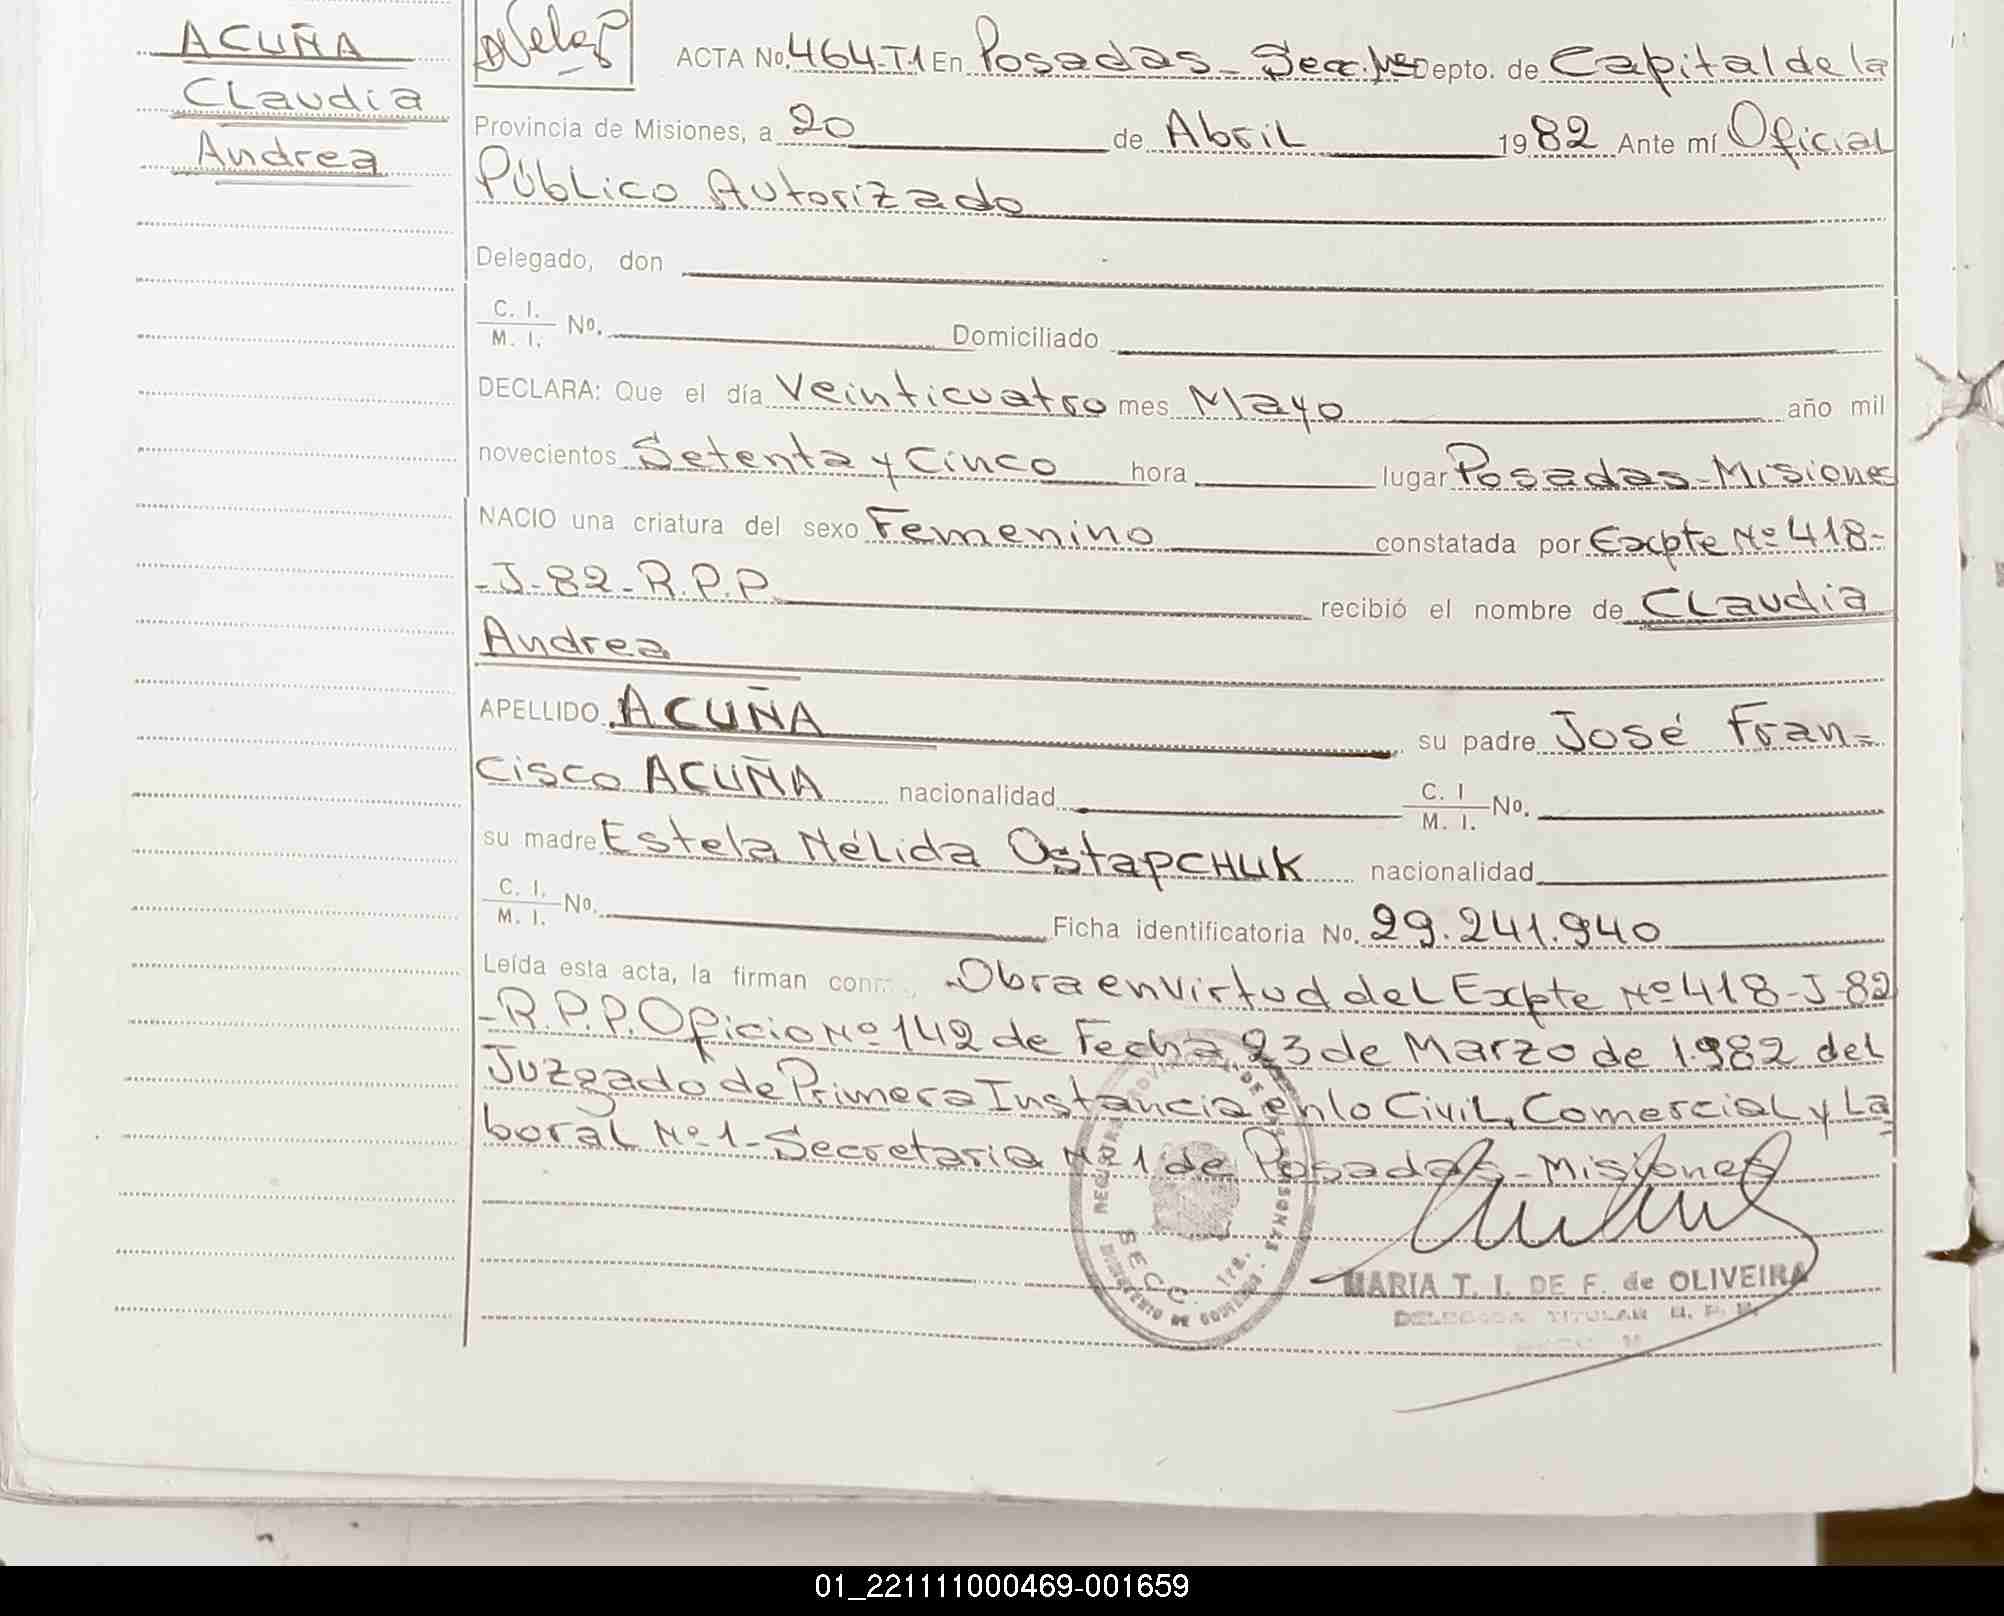 ACUÑA
Claudia
Andrea
ACTA No. 464-T1 En Posadas - Secc. 1ra Depto. de Capital de la
Provincia de Misiones, a 20 de Abril 1982 Ante mí Oficial
Público Autorizado
Delegado, don
C. I.
M. I. No. Domiciliado
DECLARA: Que el día Veinticuatro mes Mayo año mil
novecientos Setenta y Cinco hora lugar Posadas-Misiones
NACIO una criatura del sexo Femenino constatada por Expte Nº 418-
-J-82-R.P.P. recibió el nombre de Claudia
Andrea
APELLIDO ACUÑA su padre José Fran=
cisco ACUÑA nacionalidad C. I
M. I. No.
su madre Estela Nélida OstapCHUK nacionalidad
C. I.
M. I. No. Ficha identificatoria No. 29.241.940
Leída esta acta, la firman con Obra en virtud del Expte Nº 418-J-82
-R.P.P. Oficio Nº 142 de Fecha 23 de Marzo de 1.982 del
Juzgado de Primera Instancia en lo Civil, Comercial y La
boral Nº 1- Secretaria Nº 1 de Posadas-Misiones
SECC. 1ra.
MARIA T. I. DE F. de OLIVEIRA
DELEGADA TITULAR R. P. P.
01_221111000469-001659